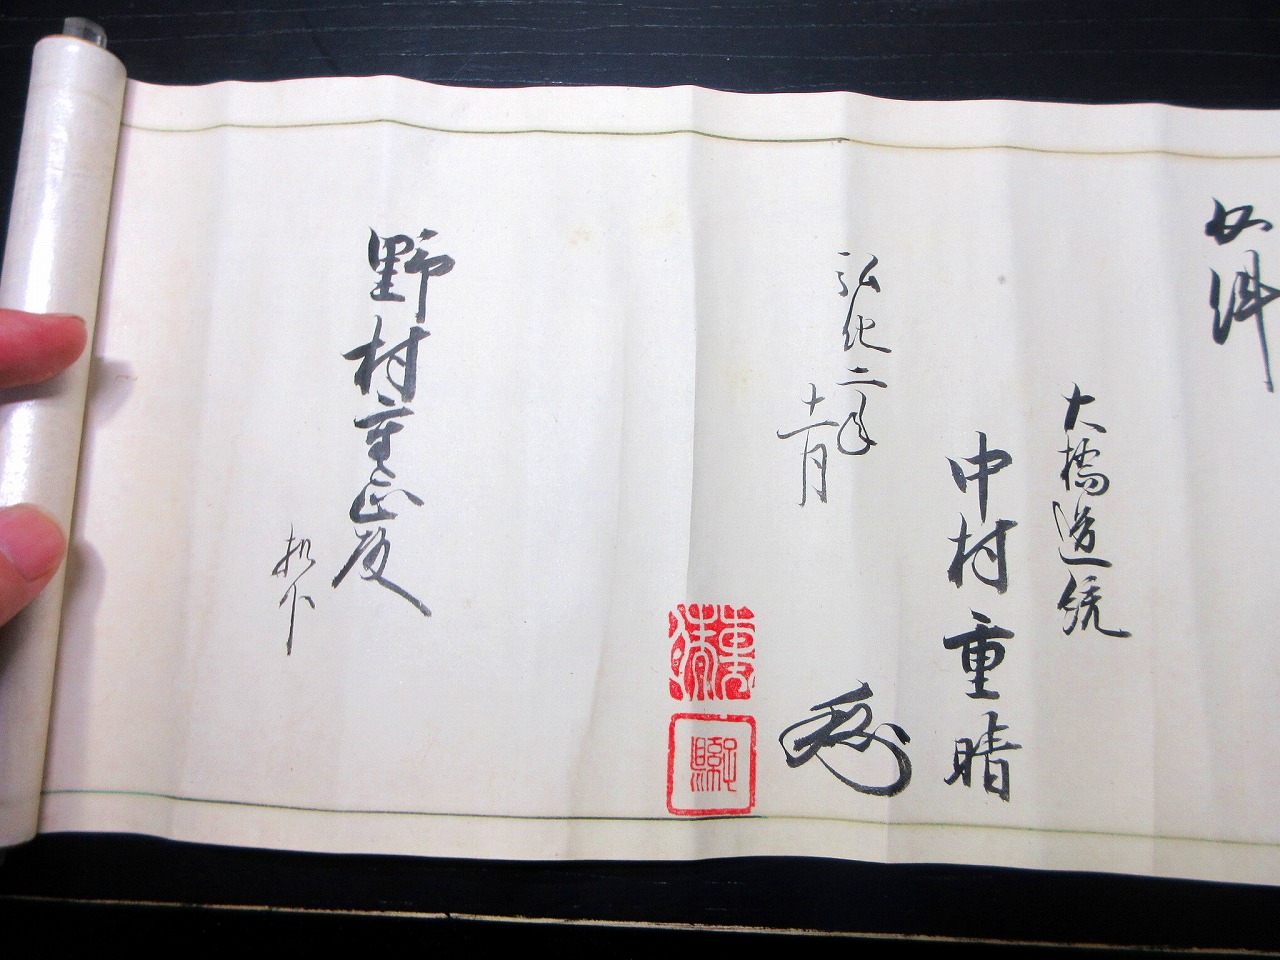 如件
大橋道統
中村重晴
弘化二年
十一月
野村重正殿
机下